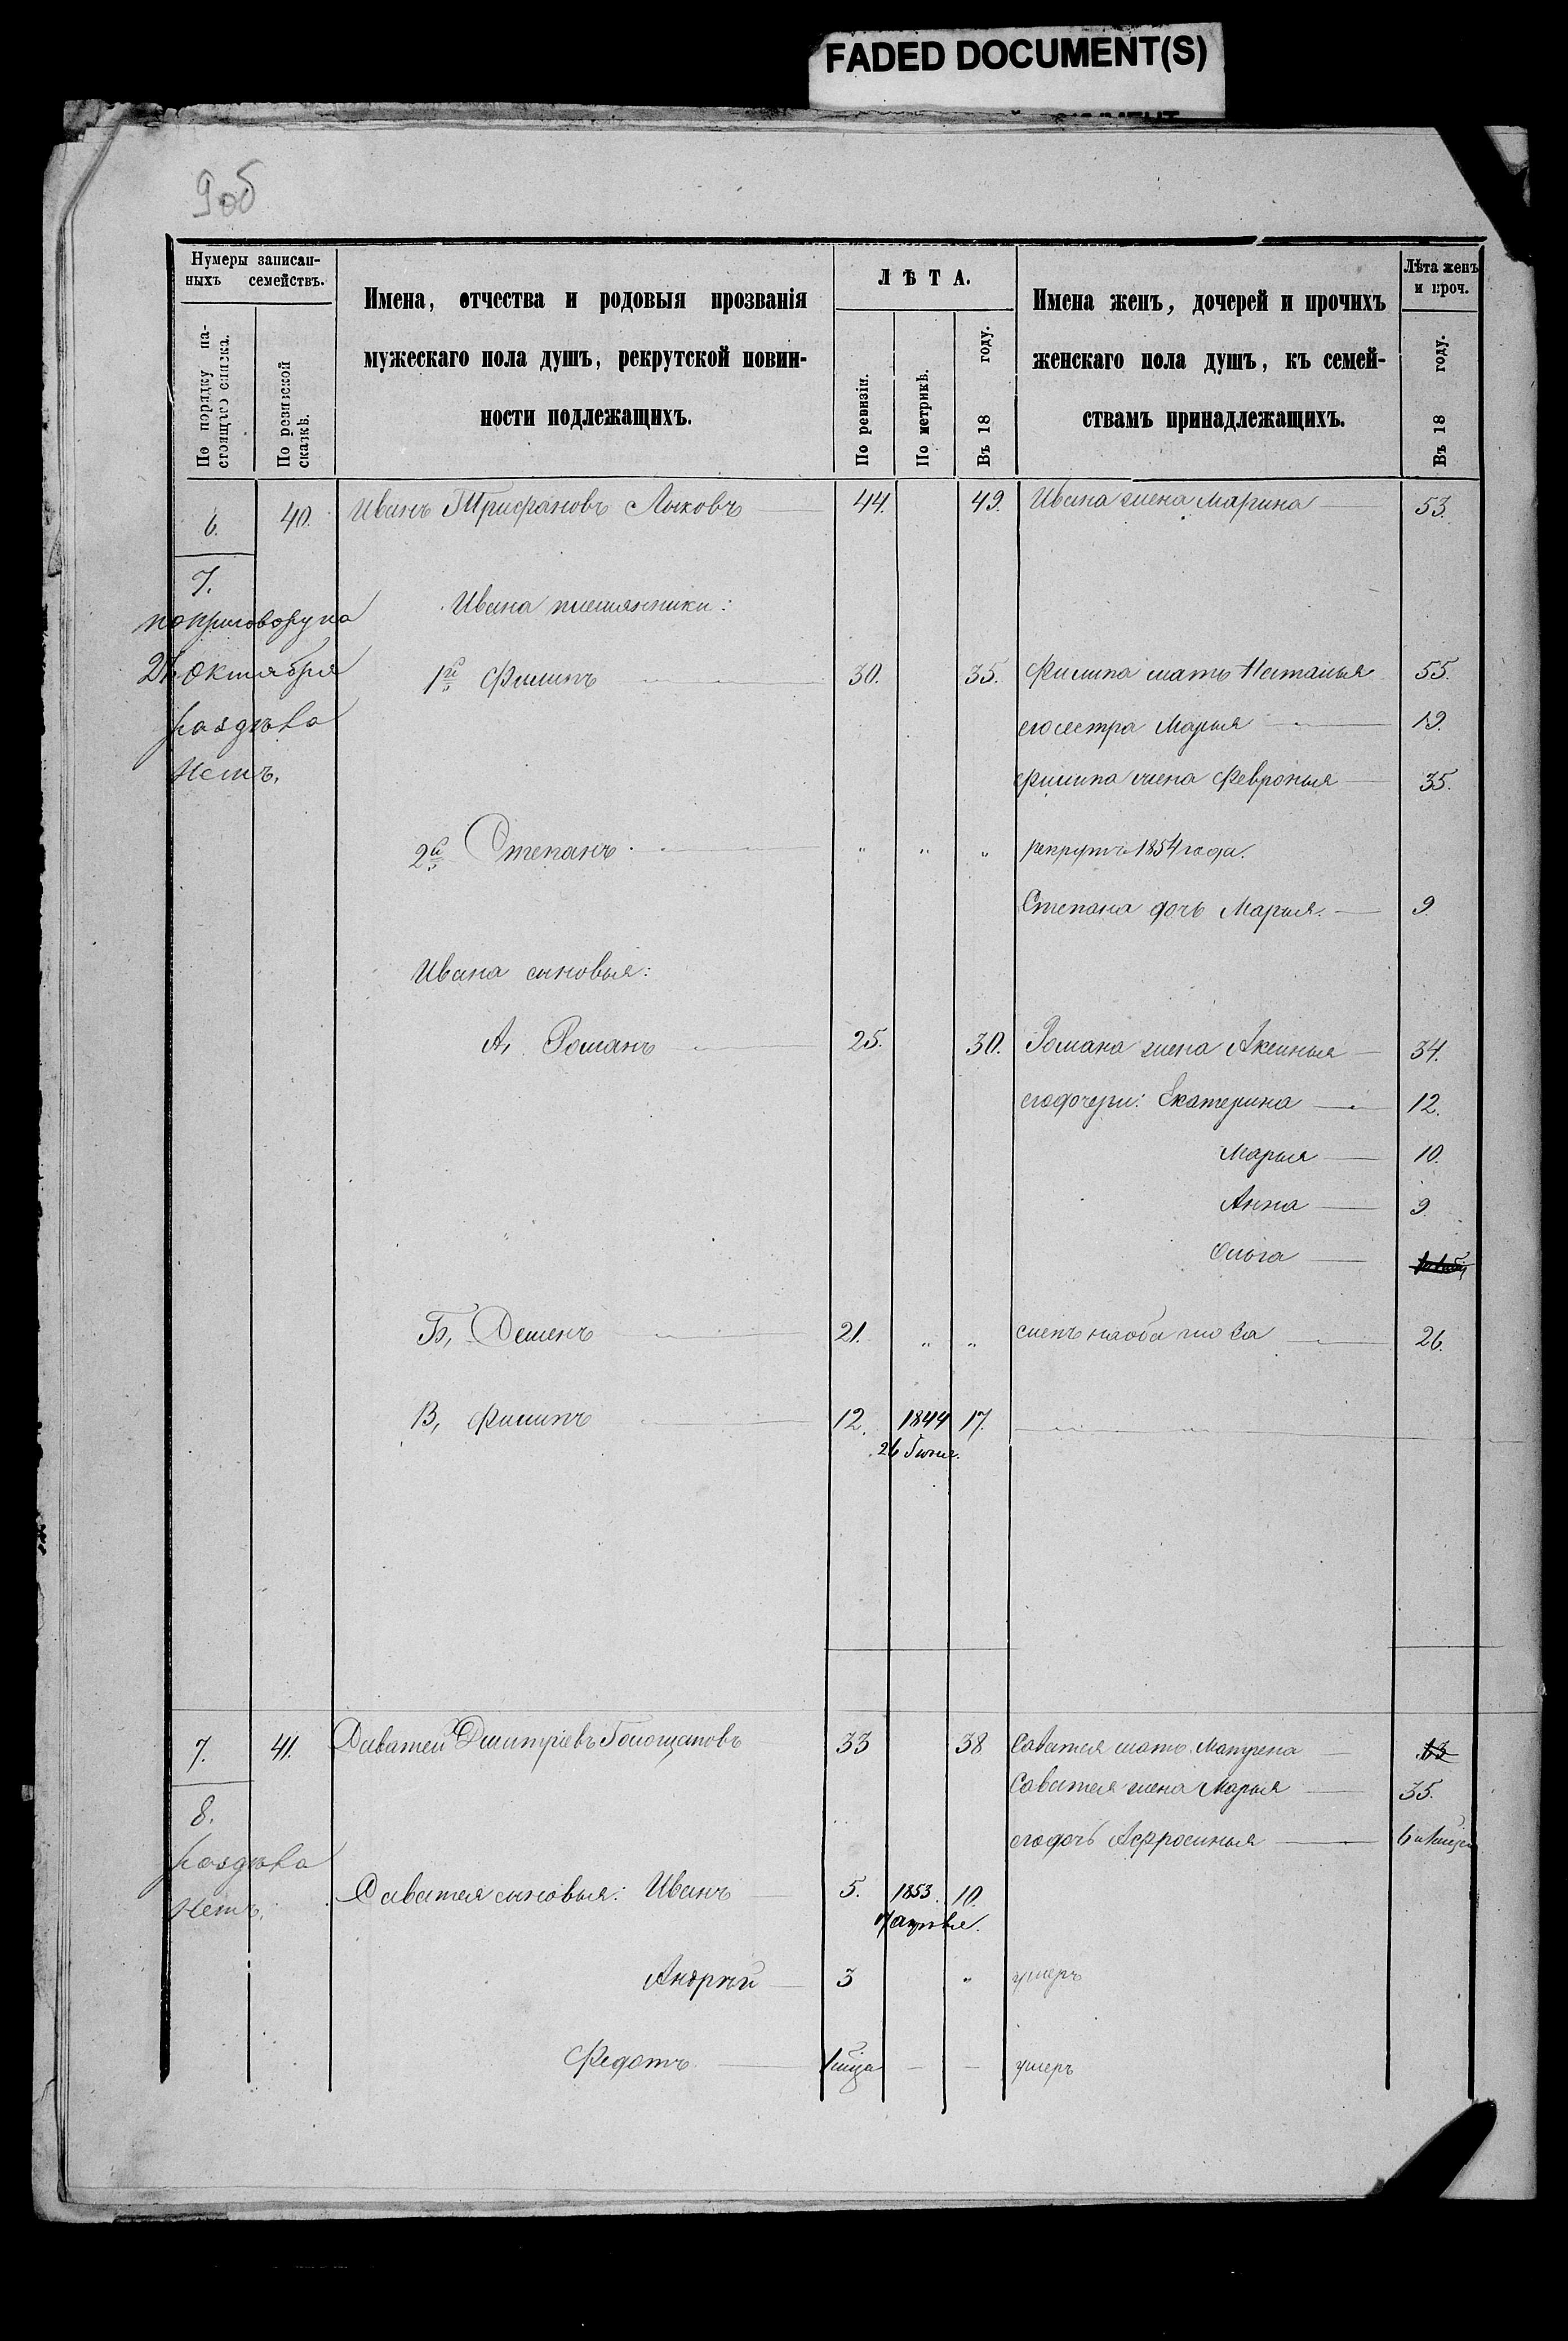 FADED DOCUMENT(S)
9об
Нумеры записан-
ныхъ семействъ.
По порядку на-
стоящаго списка.
По ревизской
сказкѣ.
Имена, отчества и родовыя прозванія
мужескаго пола душъ, рекрутской повин-
ности подлежащихъ.
ЛѢТА.
По ревизіи.
По метрикѣ.
Въ 18 году.
Имена женъ, дочерей и прочихъ
женскаго пола душъ, къ семей-
ствамъ принадлежащихъ.
Лѣта женъ
и проч.
Въ 18 году.
6. 40. Иванъ Трифановъ Лыковъ 44. 49. Ивана жена Марина 53.
7.
по приговору на
Ивана племянники:
октября
раздѣла
Нетъ.
1й Филипъ 30. 35. Филипа мать Наталья 55.
его сестра Марья 19.
Филипа жена Февронья 35.
2й Степанъ " " " рекрутъ 1854 года.
Степана дочь Марья 9.
Ивана сыновья:
А, Романъ 25. 30. Романа жена Аксинья 34.
его дочери: Екатерина 12.
Марья 10.
Анна 9.
Ольга
Б, Семенъ 21. " " слепъ на оба глаза 26.
В, Филипъ 12. 1844 17.
26 Іюня.
7. 41. Саватей Дмитріевъ Голощаповъ 33 38 Саватея мать Матрена 63
Саватея жена Марья 35.
8.
его дочь Афросинья
раздѣла
Нетъ.
Саватея сыновья: Иванъ 5. 1853. 10.
апреля.
Андрѣй 3 " умеръ
Федотъ 1 мца — — умеръ